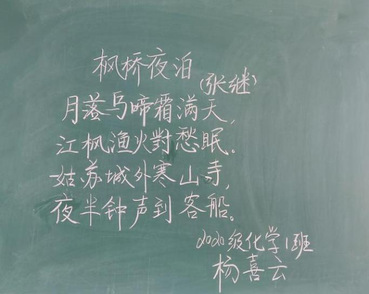 枫桥夜泊
(张继)
月落乌啼霜满天,
江枫渔火對愁眠。
姑苏城外寒山寺,
夜半钟声到客船。
2020级化学1班
杨喜云